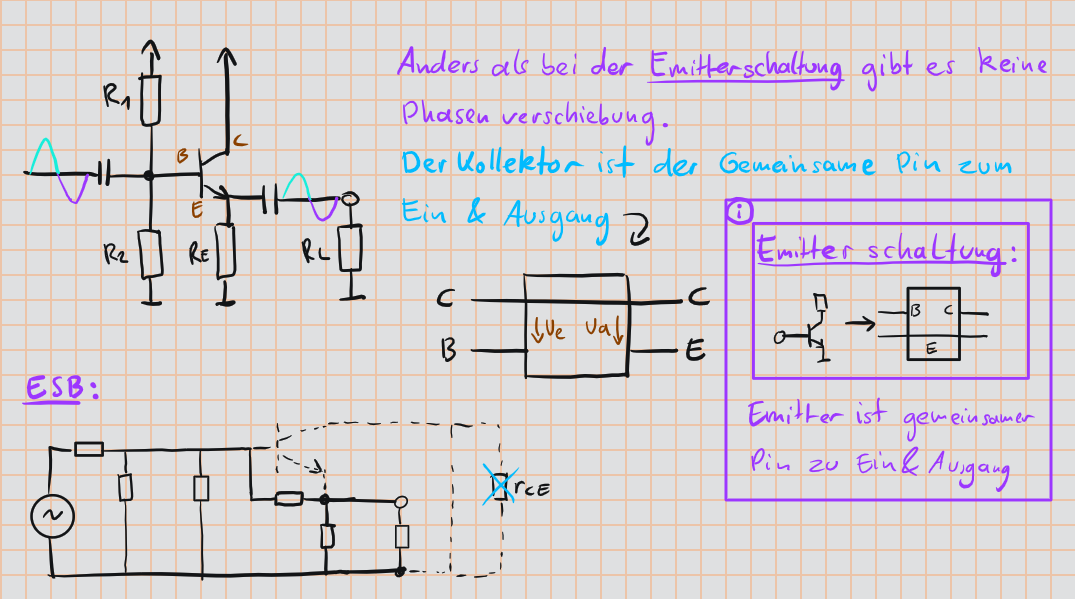 R1
C
B
E
R2
RE
RL
Anders als bei der Emitterschaltung gibt es keine
Phasenverschiebung.
Der Kollektor ist der Gemeinsame Pin zum
Ein & Ausgang
C
C
↓Ue
Ua↓
B
E
i
Emitterschaltung:
B
C
E
Emitter ist gemeinsamer
Pin zu Ein & Ausgang
ESB:
~
rCE